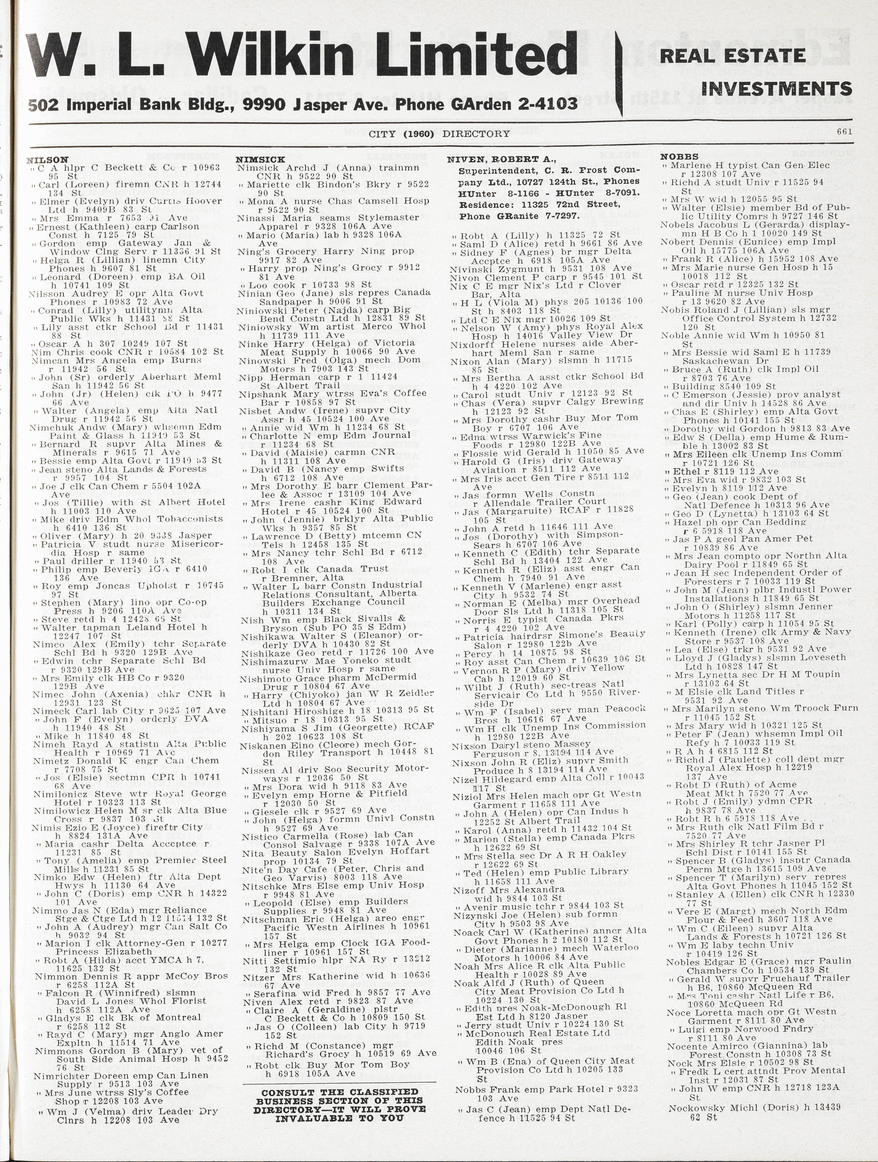 W. L. Wilkin Limited
REAL ESTATE
INVESTMENTS
502 Imperial Bank Bldg., 9990 Jasper Ave. Phone GArden 2-4103
CITY (1960) DIRECTORY
661
NILSON
" C A hlpr C Beckett & Co r 10963
95 St
" Carl (Loreen) firemn CNR h 12744
134 St
" Elmer (Evelyn) driv Curtis Hoover
Ltd h 9409B 83 St
" Mrs Emma r 7653 Ave
" Ernest (Kathleen) carp Carlson
Const h 7125 79 St
" Gordon emp Gateway Jan &
Window Clng Serv r 11336 91 St
" Helga R (Lillian) linemn City
Phones h 9607 81 St
" Leonard (Doreen) emp BA Oil
h 10741 109 St
Nilsson Audrey E opr Alta Govt
Phones r 10983 72 Ave
" Conrad (Lilly) utilitymn Alta
Public Wks h 11431 88 St
" Lily asst ctkr School Bd r 11431
88 St
" Oscar A h 307 10249 107 St
Nim Chris cook CNR r 10584 102 St
Nimcan Mrs Angela emp Burns
r 11942 56 St
" John (Sr) orderly Aberhart Meml
San h 11942 56 St
" John (Jr) (Helen) clk PO h 9477
66 Ave
" Walter (Angela) emp Alta Natl
Drug r 11942 56 St
Nimchuk Andw (Mary) whsemn Edm
Paint & Glass h 11949 53 St
" Bernard R supvr Alta Mines &
Minerals r 9615 71 Ave
" Bessie emp Alta Govt r 11949 53 St
" Jean steno Alta Lands & Forests
r 9957 104 St
" Joe J clk Can Chem r 5504 102A
Ave
" Jos (Tillie) with St Albert Hotel
h 11003 110 Ave
" Mike driv Edm Whol Tobacconists
h 6410 136 St
" Oliver (Mary) h 20 9538 Jasper
" Patricia V studt nurse Misericor-
dia Hosp r same
" Paul driller r 11940 53 St
" Philip emp Beverly IGA r 6410
136 Ave
" Roy emp Joncas Upholst r 10745
97 St
" Stephen (Mary) lino opr Co-op
Press h 9206 110A Ave
" Steve retd h 4 12428 66 St
" Walter tapman Leland Hotel h
12247 107 St
Nimco Alex (Emily) tchr Separate
Schl Bd h 9320 129B Ave
" Edwin tchr Separate Schl Bd
r 9320 129B Ave
" Mrs Emily clk HB Co r 9320
129B Ave
Nimec John (Axenia) chkr CNR h
12931 123 St
Nimeck Carl lab City r 9625 107 Ave
" John F (Evelyn) orderly DVA
h 11940 48 St
" Mike h 11840 48 St
Nimeh Rayd A statistn Alta Public
Health r 10969 71 Ave
Nimetz Donald K engr Can Chem
r 7708 75 St
" Jos (Elsie) sectmn CPR h 10741
68 Ave
Nimilonicz Steve wtr Royal George
Hotel r 10323 113 St
Nimilowicz Helen M sr clk Alta Blue
Cross r 9837 103 St
Nimis Ezio E (Joyce) fireftr City
h 8824 131A Ave
" Maria cashr Delta Acceptce r
11231 85 St
" Tony (Amelia) emp Premier Steel
Mills h 11231 85 St
Nimko Edw (Helen) ftr Alta Dept
Hwys h 11130 64 Ave
" John C (Doris) emp CNR h 14322
101 Ave
Nimmo Jas N (Eda) mgr Reliance
Stge & Ctge Ltd h 12 11574 132 St
" John A (Audrey) mgr Can Salt Co
h 9032 94 St
" Marion I clk Attorney-Gen r 10277
Princess Elizabeth
" Robt A (Hilda) acct YMCA h 7,
11625 132 St
Nimmon Dennis R appr McCoy Bros
r 6258 112A St
" Falcon R (Winnifred) slsmn
David L Jones Whol Florist
h 6258 112A Ave
" Gladys E clk Bk of Montreal
r 6258 112 St
" Rayd C (Mary) mgr Anglo Amer
Expltn h 11514 71 Ave
Nimmons Gordon B (Mary) vet of
South Side Animal Hosp h 9452
76 St
Nimrichter Doreen emp Can Linen
Supply r 9513 103 Ave
" Mrs June wtrss Sly's Coffee
Shop r 12208 103 Ave
" Wm J (Velma) driv Leader Dry
Clnrs h 12208 103 Ave
NIMSICK
Nimsick Archd J (Anna) trainmn
CNR h 9522 90 St
" Mariette clk Bindon's Bkry r 9522
90 St
" Mona A nurse Chas Camsell Hosp
r 9522 90 St
Ninassi Maria seams Stylemaster
Apparel r 9328 106A Ave
" Mario (Maria) lab h 9328 106A
Ave
Ning's Grocery Harry Ning prop
9917 82 Ave
" Harry prop Ning's Grocy r 9912
81 Ave
" Loo cook r 10733 98 St
Ninian Geo (Jane) sls repres Canada
Sandpaper h 9006 91 St
Niniowski Peter (Najda) carp Big
Bend Constn Ltd h 12831 89 St
Niniowsky Wm artist Merco Whol
h 11739 111 Ave
Ninke Harry (Helga) of Victoria
Meat Supply h 10066 90 Ave
Ninowski Fred (Olga) mech Dom
Motors h 7903 143 St
Nipp Herman carp r 1 11424
St Albert Trail
Nipshank Mary wtrss Eva's Coffee
Bar r 10858 97 St
Nisbet Andw (Irene) supvr City
Assr h 45 10524 100 Ave
" Annie wid Wm h 11234 68 St
" Charlotte N emp Edm Journal
r 11234 68 St
" David (Maisie) carmn CNR
h 11311 108 Ave
" David B (Nancy emp Swifts
h 6712 108 Ave
" Mrs Dorothy E barr Clement Par-
lee & Assoc r 13109 104 Ave
" Mrs Irene cashr King Edward
Hotel r 45 10524 100 St
" John (Jennie) brklyr Alta Public
Wks h 9357 85 St
" Lawrence D (Betty) mtcemn CN
Tels h 12458 135 St
" Mrs Nancy tchr Schl Bd r 6712
108 Ave
" Robt I clk Canada Trust
r Bremner, Alta
" Walter L barr Constn Industrial
Relations Consultant, Alberta
Builders Exchange Council
h 10311 134 St
Nish Wm emp Black Sivalls &
Bryson (Sub PO 35 S Edm)
Nishikawa Walter S (Eleanor) or-
derly DVA h 10430 82 St
Nishikaze Geo retd r 11726 100 Ave
Nishimazurw Mae Yoneko studt
nurse Univ Hosp r same
Nishimoto Grace pharm McDermid
Drug r 10804 67 Ave
" Harry (Chiyoko) jan W R Zeidler
Ltd h 10804 67 Ave
Nishitani Hiroshige h 18 10313 95 St
" Mitsuo r 18 10313 95 St
Nishiyama S Jim (Georgette) RCAF
h 202 10623 108 St
Niskanen Eino (Cleore) mech Gor-
don Riley Transport h 10448 81
St
Nissen Al driv Soo Security Motor-
ways r 12036 50 St
" Mrs Dora wid h 9118 83 Ave
" Evelyn emp Horne & Pitfield
r 12030 50 St
" Giesele clk r 9527 69 Ave
" John (Helga) formn Univl Constn
h 9527 69 Ave
Nistico Carmella (Rose) lab Can
Consol Salvage r 9338 107A Ave
Nita Beauty Salon Evelyn Hoffart
prop 10134 79 St
Nite'n Day Cafe (Peter, Chris and
Geo Varvis) 8003 118 Ave
Nitschke Mrs Else emp Univ Hosp
r 9948 81 Ave
" Leopold (Else) emp Builders
Supplies r 9948 81 Ave
Nitschman Eric (Helga) areo engr
Pacific Westn Airlines h 10961
157 St
" Mrs Helga emp Clock IGA Food-
liner r 10961 157 St
Nitti Settimio hlpr NA Ry r 13212
132 St
Nitzer Mrs Katherine wid h 10636
67 Ave
" Serafina wid Fred h 9857 77 Ave
Niven Alex retd r 9823 87 Ave
" Claire A (Geraldine) plstr
C Beckett & Co h 10809 150 St
" Jas O (Colleen) lab City h 9719
152 St
" Richd M (Constance) mgr
Richard's Grocy h 10519 69 Ave
" Robt clk Buy Mor Tom Boy
h 6918 105A Ave
CONSULT THE CLASSIFIED
BUSINESS SECTION OF THIS
DIRECTORY—IT WILL PROVE
INVALUABLE TO YOU
NIVEN, ROBERT A.,
Superintendent, C. R. Frost Com-
pany Ltd., 10727 124th St., Phones
HUnter 8-1166 - HUnter 8-7091.
Residence: 11325 72nd Street,
Phone GRanite 7-7297.
" Robt A (Lilly) h 11325 72 St
" Saml D (Alice) retd h 9661 86 Ave
" Sidney F (Agnes) br mgr Delta
Accptce h 6918 105A Ave
Nivinski Zygmunt h 9531 108 Ave
Nivon Clement P carp r 9545 101 St
Nix C E mgr Nix's Ltd r Clover
Bar, Alta
" H L (Viola M) phys 205 10136 100
St h 8403 118 St
" Ltd C E Nix mgr 10026 109 St
" Nelson W (Amy) phys Royal Alex
Hosp h 14016 Valley View Dr
Nixdorff Helene nurses aide Aber-
hart Meml San r same
Nixon Alan (Mary) slsmn h 11715
85 St
" Mrs Bertha A asst ctkr School Bd
h 4 4220 102 Ave
" Carol studt Univ r 12123 92 St
" Chas (Vera) supvr Calgy Brewing
h 12123 92 St
" Mrs Dorothy cashr Buy Mor Tom
Boy r 6707 106 Ave
" Edna wtrss Warwick's Fine
Foods r 12980 122B Ave
" Flossie wid Gerald h 11050 85 Ave
" Harold G (Iris) driv Gateway
Aviation r 8511 112 Ave
" Mrs Iris acct Gen Tire r 8511 112
Ave
" Jas formn Wells Constn
r Allendale Trailer Court
" Jas (Marguruite) RCAF r 11828
105 St
" John A retd h 11646 111 Ave
" Jos (Dorothy) with Simpson-
Sears h 6707 106 Ave
" Kenneth C (Edith) tchr Separate
Schl Bd h 13404 122 Ave
" Kenneth R (Eliz) asst engr Can
Chem h 7940 91 Ave
" Kenneth V (Marlene) engr asst
City h 9532 74 St
" Norman E (Melba) mgr Overhead
Door Sls Ltd h 11318 105 St
" Norris E typist Canada Pkrs
r 4 4220 102 Ave
" Patricia hairdrsr Simone's Beauty
Salon r 12980 122b Ave
" Percy h 14 10875 98 St
" Roy asst Can Chem r 10639 106 St
" Vernon R P (Mary) driv Yellow
Cab h 12019 60 St
" Wilbt J (Ruth) sec-treas Natl
Servicair Co Ltd h 9550 River-
side Dr
" Wm F (Isabel) serv man Peacock
Bros h 10616 67 Ave
" Wm H clk Unemp Ins Commission
h 12980 122B Ave
Nixson Daryl steno Massey
Ferguson r 8, 13194 114 Ave
Nixson John R (Eliz) supvr Smith
Produce h 8 13194 114 Ave
Nizel Hildegard emp Alta Coll r 10043
117 St
Niziol Mrs Helen mach opr Gt Westn
Garment r 11658 111 Ave
" John A (Helen) opr Can Indus h
12252 St Albert Trail
" Karol (Anna) retd h 11432 104 St
" Marion (Stella) emp Canada Pkrs
h 12622 69 St
" Mrs Stella sec Dr A R H Oakley
r 12622 69 St
" Ted (Helen) emp Public Library
h 11658 111 Ave
Nizoff Mrs Alexandra
wid h 9844 103 St
" Avenir music tchr r 9844 103 St
Nizynski Joe (Helen) sub formn
City h 9503 98 Ave
Noack Carl W (Katherine) anncr Alta
Govt Phones h 2 10180 112 St
" Dieter (Marianne) mech Waterloo
Motors h 10006 84 Ave
Noah Mrs Alice R clk Alta Public
Health r 10028 89 Ave
Noak Alfd J (Ruth) of Queen
City Meat Provision Co Ltd h
10224 130 St
" Edith pres Noak-McDonough Rl
Est Ltd h 8120 Jasper
" Jerry studt Univ r 10224 130 St
" McDonough Real Estate Ltd
Edith Noak pres
10046 106 St
" Wm B (Ena) of Queen City Meat
Provision Co Ltd h 10205 133
St
Nobbs Frank emp Park Hotel r 9323
103 Ave
" Jas C (Jean) emp Dept Natl De-
fence h 11525 94 St
NOBBS
" Marlene H typist Can Gen Elec
r 12308 107 Ave
" Richd A studt Univ r 11525 94
St
" Mrs W wid h 12055 95 St
" Walter (Elsie) member Bd of Pub-
lic Utility Comrs h 9727 146 St
Nobels Jacobus L (Gerarda) display-
mn H B Co h 1 10020 149 St
Nobert Dennis (Eunice) emp Impl
Oil h 15775 106A Ave
" Frank R (Alice) h 15952 108 Ave
" Mrs Marie nurse Gen Hosp h 15
10018 112 St
" Oscar retd r 12325 132 St
" Pauline M nurse Univ Hosp
r 13 9620 82 Ave
Nobis Roland J (Lillian) sls mgr
Office Control System h 12732
120 St
Noble Annie wid Wm h 10950 81
St
" Mrs Bessie wid Saml E h 11739
Saskachewan Dr
" Bruce A (Ruth) clk Impl Oil
r 8703 76 Ave
" Building 8540 109 St
" C Emerson (Jessie) prov analyst
and dir Univ h 14528 86 Ave
" Chas E (Shirley) emp Alta Govt
Phones h 10141 155 St
" Dorothy wid Gordon h 9813 83 Ave
" Edw S (Della) emp Hume & Rum-
ble h 13002 83 St
" Mrs Eileen clk Unemp Ins Comm
r 10721 126 St
" Ethel r 8119 112 Ave
" Mrs Eva wid r 9832 103 St
" Evelyn h 8119 112 Ave
" Geo (Jean) cook Dept of
Natl Defence h 10313 96 Ave
" Geo D (Lynetta) h 13103 64 St
" Hazel ph opr Can Bedding
r 6 5918 118 Ave
" Jas P A geol Pan Amer Pet
r 10839 86 Ave
" Mrs Jean compto opr Northn Alta
Dairy Pool r 11849 65 St
" Jean H sec Independent Order of
Foresters r 7 10033 119 St
" John M (Jean) plbr Industl Power
Installations h 11849 65 St
" John O (Shirley) slsmn Jenner
Motors h 11258 117 St
" Karl (Polly) carp h 11054 95 St
" Kenneth (Irene) clk Army & Navy
Store r 9537 108 Ave
" Lea (Else) trkr h 9531 92 Ave
" Lloyd J (Gladys) slsmn Loveseth
Ltd h 10828 147 St
" Mrs Lynetta sec Dr H M Toupin
r 13103 64 St
" M Elsie clk Land Titles r
9531 92 Ave
" Mrs Marilyn steno Wm Troock Furn
r 11045 152 St
" Mrs Mary wid h 10321 125 St
" Peter F (Jean) whsemn Impl Oil
Refy h 7 10033 119 St
" R A h 4 6815 112 St
" Richd J (Paulette) coll dept mgr
Royal Alex Hosp h 12219
137 Ave
" Robt D (Ruth) of Acme
Meat Mkt h 7520 77 Ave
" Robt J (Emily) ydmn CPR
h 9837 78 Ave
" Robt R h 6 5918 118 Ave
" Mrs Ruth clk Natl Film Bd r
7520 77 Ave
" Mrs Shirley R tchr Jasper Pl
Schl Dist r 10141 155 St
" Spencer B (Gladys) insptr Canada
Perm Mtge h 13615 109 Ave
" Spencer T (Marilyn) serv repres
Alta Govt Phones h 11045 152 St
" Stanley A (Ellen) clk CNR h 12330
77 St
" Vere E (Margt) mech North Edm
Flour & Feed h 3607 118 Ave
" Wm C (Eileen) supvr Alta
Lands & Forests h 10721 126 St
" Wm E laby techn Univ
r 10419 126 St
Nobles Edgar E (Grace) mgr Paulin
Chambers Co h 10534 139 St
" Gerald W supvr Fruehauf Trailer
h B6, 10860 McQueen Rd
" Mrs Toni cashr Natl Life r B6,
10860 McQueen Rd
Noce Loretta mach opr Gt Westn
Garment r 8111 80 Ave
" Luigi emp Norwood Fndry
r 8111 80 Ave
Nocente Amirco (Giannina) lab
Forest Constn h 10308 73 St
Nock Mrs Elsie r 10502 98 St
" Fredk L cert attndt Prov Mental
Inst r 12031 87 St
" John W emp CNR h 12718 123A
St
Nockowsky Michl (Doris) h 13439
62 St